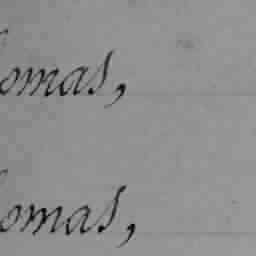 homas,
homas,